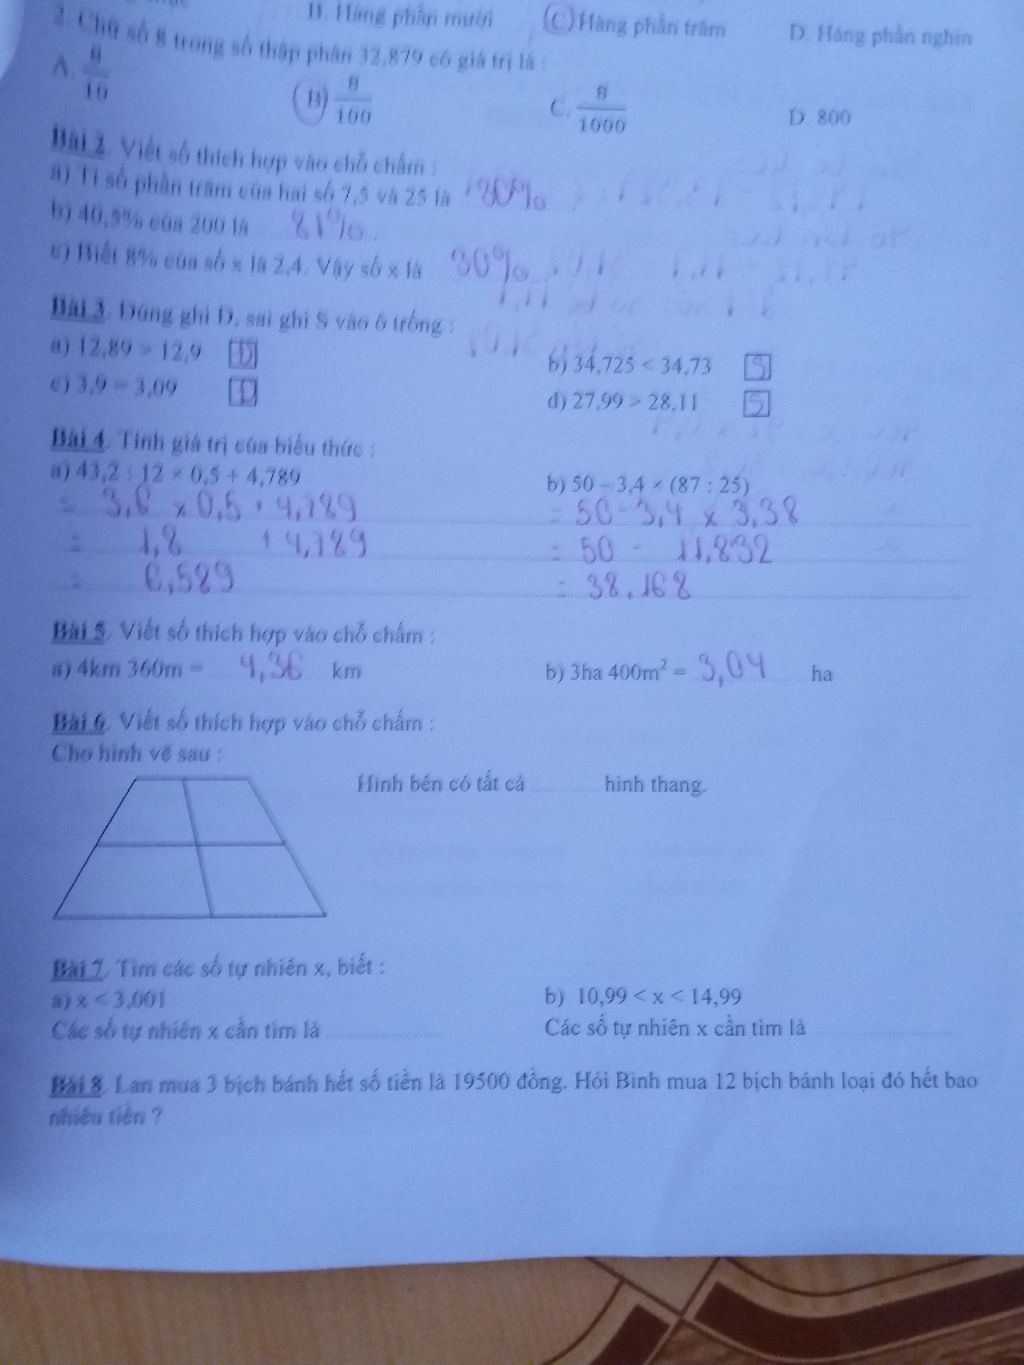 B. Hàng phần mười C Hàng phần trăm D. Hàng phần nghìn
2. Chữ số 8 trong số thập phân 32,879 có giá trị là :
A. 8/10 B) 8/100 C. 8/1000 D. 800
Bài 2. Viết số thích hợp vào chỗ chấm :
a) Tỉ số phần trăm của hai số 7,5 và 25 là 30%
b) 40,5% của 200 là 81%
c) Biết 8% của số x là 2,4. Vậy số x là 30%
Bài 3. Đúng ghi Đ, sai ghi S vào ô trống :
a) 12,89 > 12,9 Đ b) 34,725 < 34,73 S
c) 3,9 = 3,09 Đ d) 27,99 > 28,11 S
Bài 4. Tính giá trị của biểu thức :
a) 43,2 : 12 × 0,5 + 4,789 b) 50 – 3,4 × (87 : 25)
= 3,6 x 0,5 + 4,789 = 50 - 3,4 x 3,38
= 1,8 + 4,789 = 50 - 11,832
= 6,589 = 38,168
Bài 5. Viết số thích hợp vào chỗ chấm :
a) 4km 360m = 4,36 km b) 3ha 400m² = 3,04 ha
Bài 6. Viết số thích hợp vào chỗ chấm :
Cho hình vẽ sau :
Hình bên có tất cả ............ hình thang.
Bài 7. Tìm các số tự nhiên x, biết :
a) x < 3,001 b) 10,99 < x < 14,99
Các số tự nhiên x cần tìm là .................... Các số tự nhiên x cần tìm là ....................
Bài 8. Lan mua 3 bịch bánh hết số tiền là 19500 đồng. Hỏi Bình mua 12 bịch bánh loại đó hết bao
nhiêu tiền ?